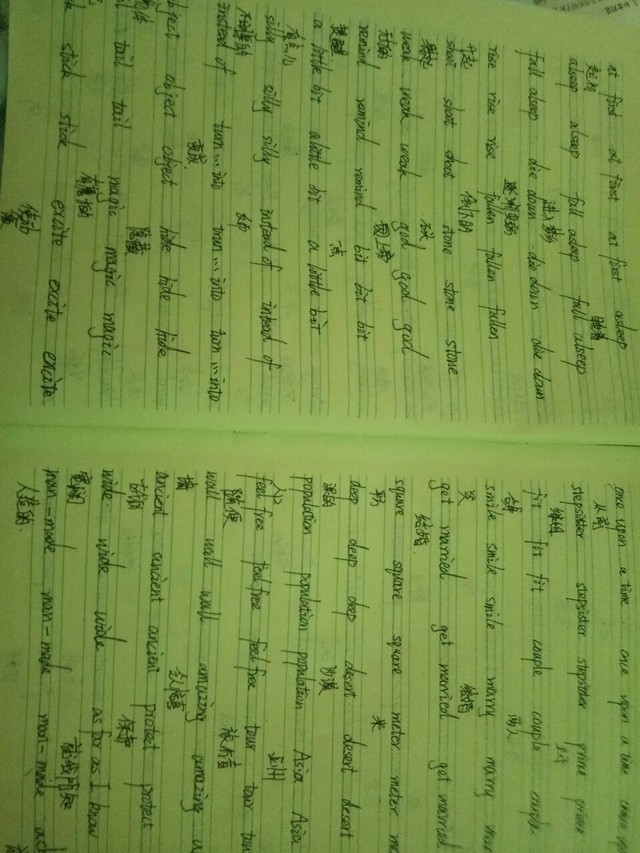 at first at first at first asleep
起初
asleep asleep fall asleep fall alseep
进入梦乡 睡着
fall asleep die down die down die down
逐渐变弱
rise rise rise fallen fallen fallen
升起 倒下的
shoot shoot shoot stone stone stone
weak weak weak god god god
remind remind remind bit bit bit
提醒 一点
a little bit a little bit a little bit
有点儿
silly silly silly instead of instead of
instead of turn...into turn...into turn...into
变成
object object hide hide hide
隐藏
tail tail magic magic magic
stick stick excite excite excite
once upon a time once upon a time
从前
stepsister stepsister stepsister prince prince
继姐
fit fit fit couple couple couple
合身 两人
smile smile smile marry marry
笑 结婚
get married get married get married
结婚
square square square meter meter
米
deep deep deep desert desert desert
深的 沙漠
population population population Asia Asia
人口 亚洲
feel free feel free feel free tour tour
随便
wall wall wall amazing amazing
墙
ancient ancient ancient protect protect
古代的 保护
wide wide wide as far as I know
宽阔 就我所知
man-made man-made man-made
人造的